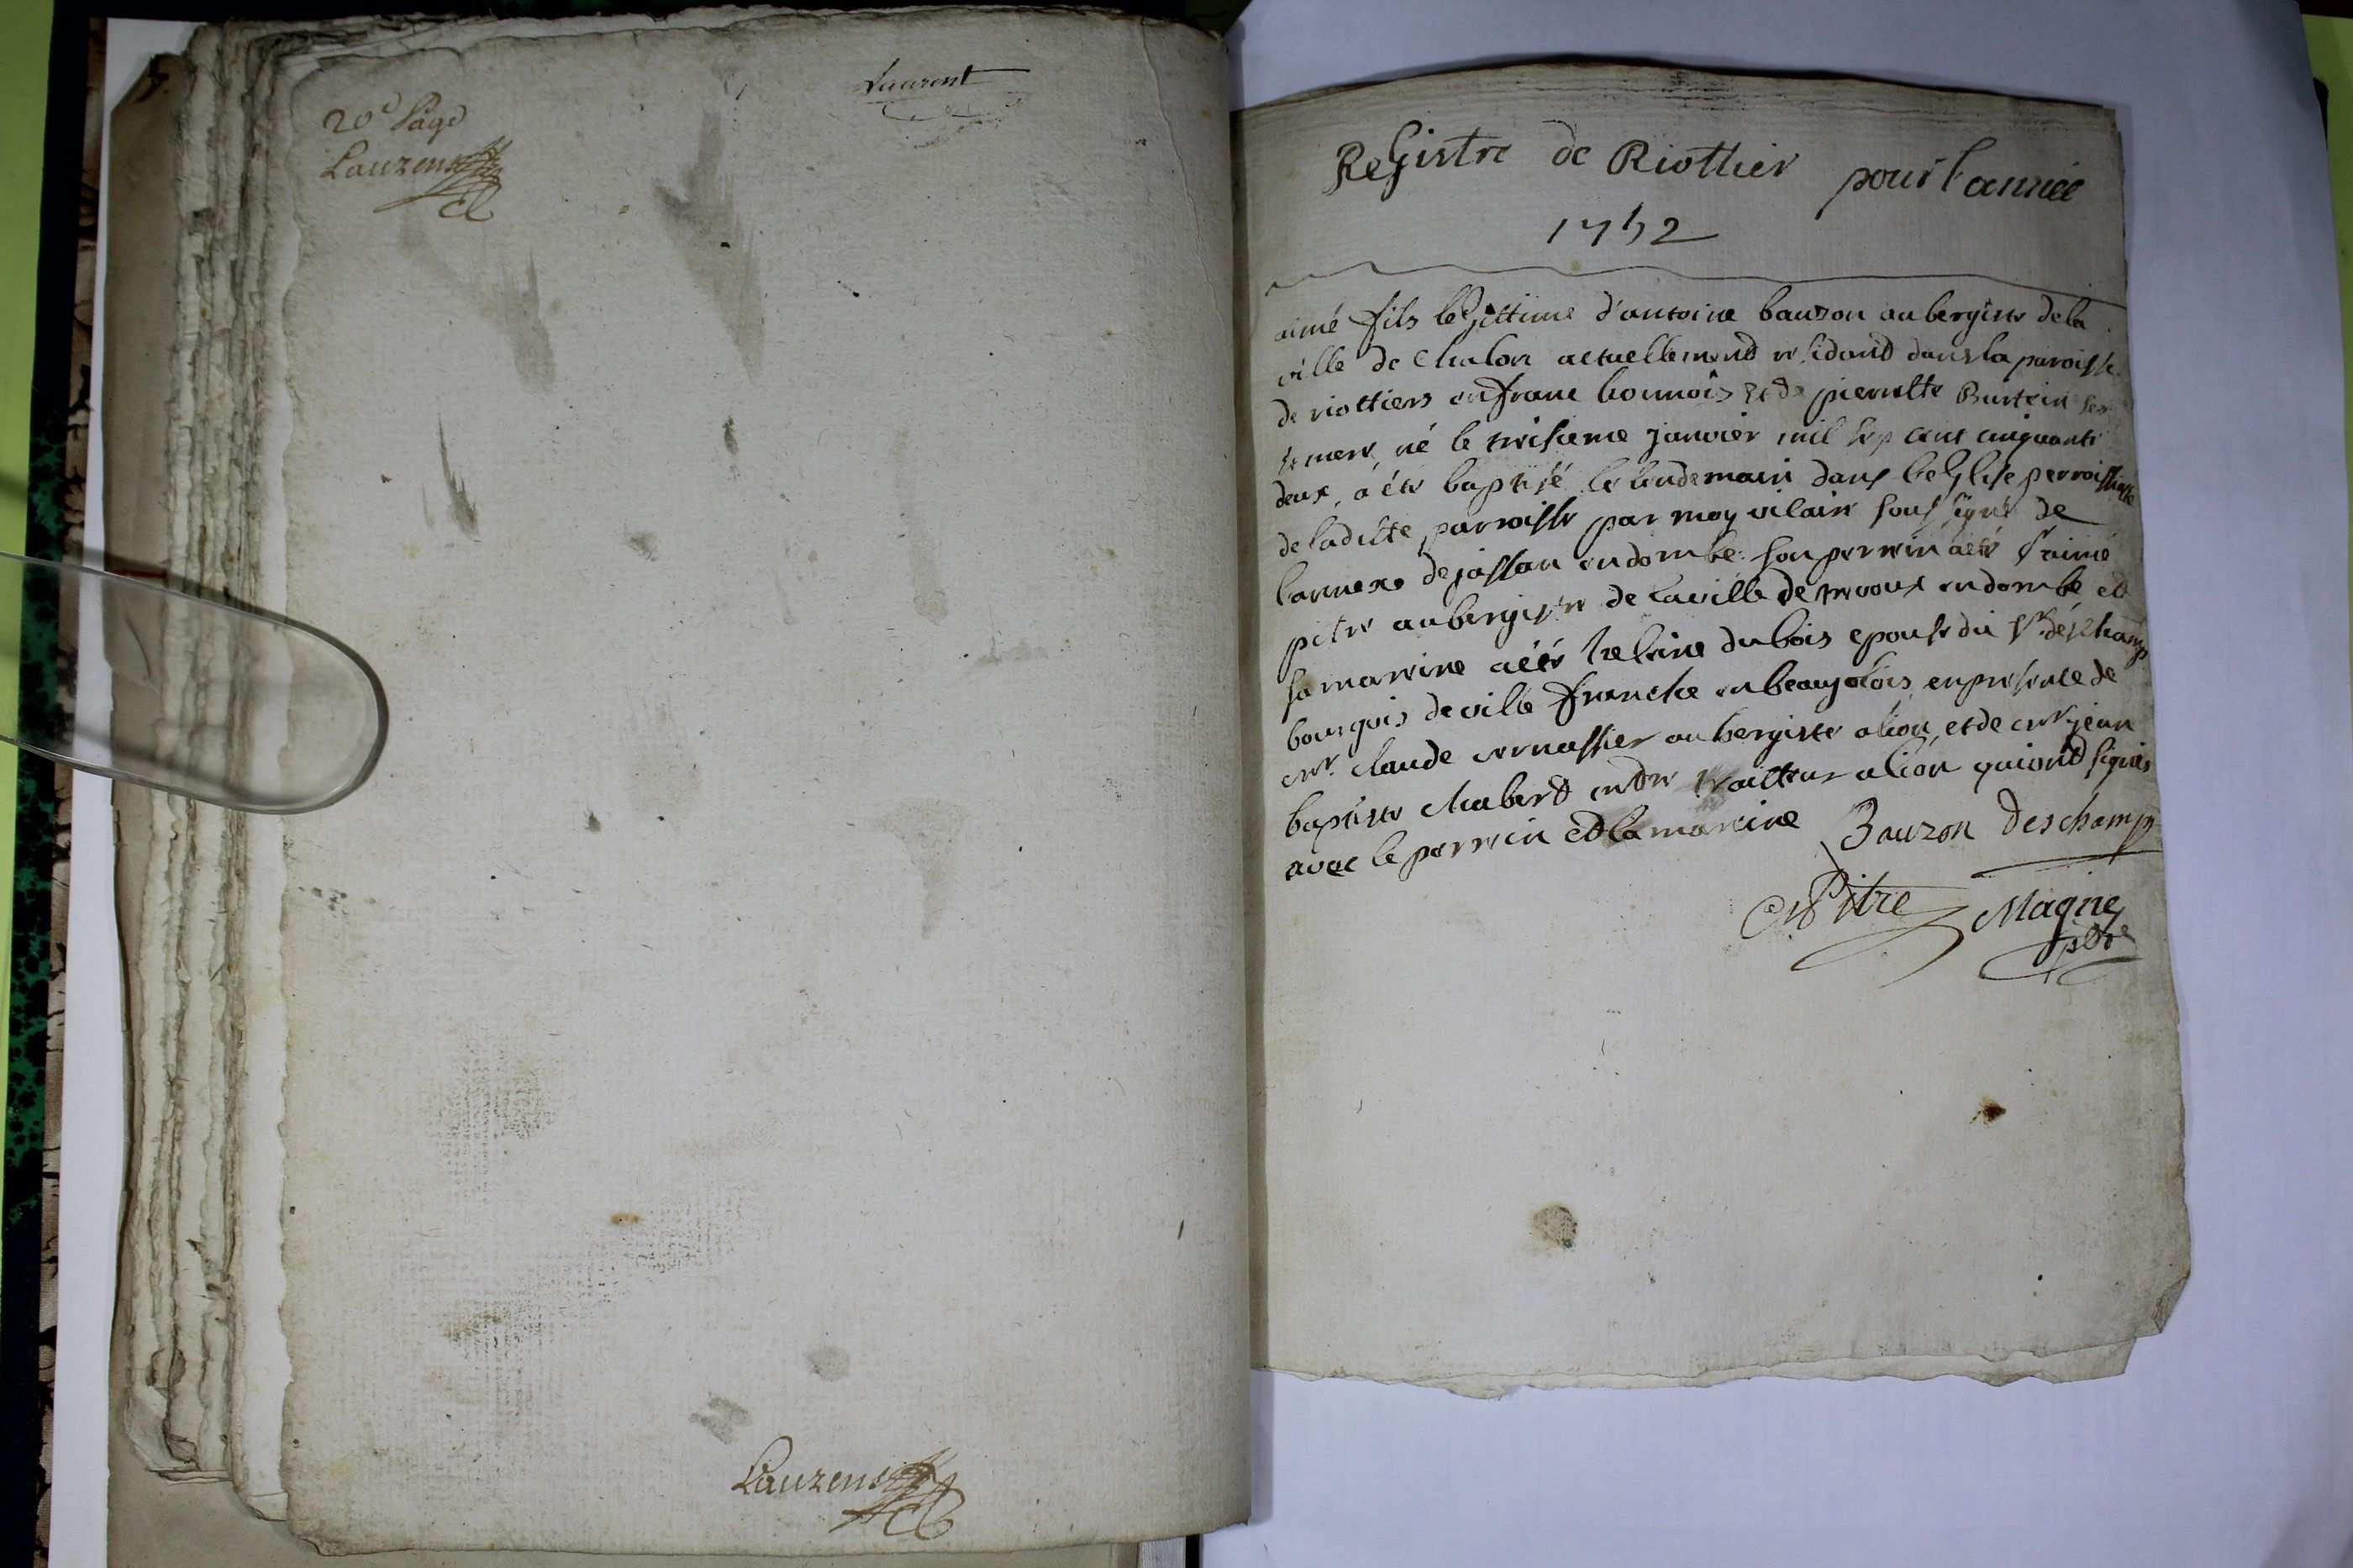 20e Page
Laurent
Laurent
Laurent
Registre de Riottier pour l'année
1752
aimé fils legittime d'antoine bauzon aubergiste de la
ville de Chalon actuellement residant dans la paroisse
de riottiers en franc lionnois et de pierrette Burtein
mere, né le treisieme janvier mil sep cent cinquante
deux, a été baptisé le lendemain dans l'eglise perroissialle
de laditte parroisse par moy vicaire soussigné de
l'annexe de jassan en dombe. son perrein a été Sr aimé
pitre aubergiste de la ville de trevoux en dombe et
sa marreine a été heleine dubois epouse du Sr déschamp
bourgois de ville franche en beaujolois, en presence de
claude aubergiste a lion, et de jean
baptiste Chabert traitteur a lion qui ont signés
avec le perrein et la mareine Bauzon Deschamps
Pitre Magne
ptre